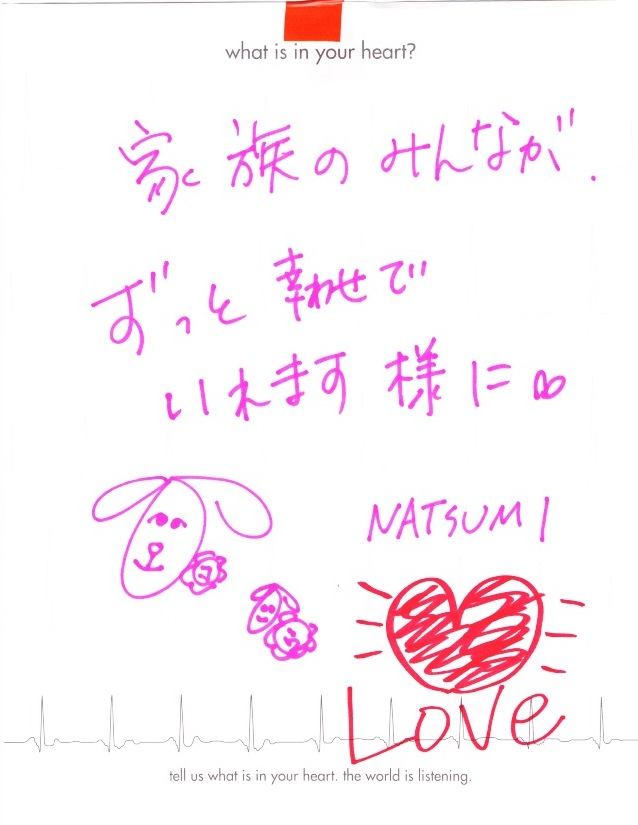 what is in your heart?
家族のみんなが.
ずっと幸わせで
いれます様に∞
NATSUMI
Love
tell us what is in your heart. the world is listening.